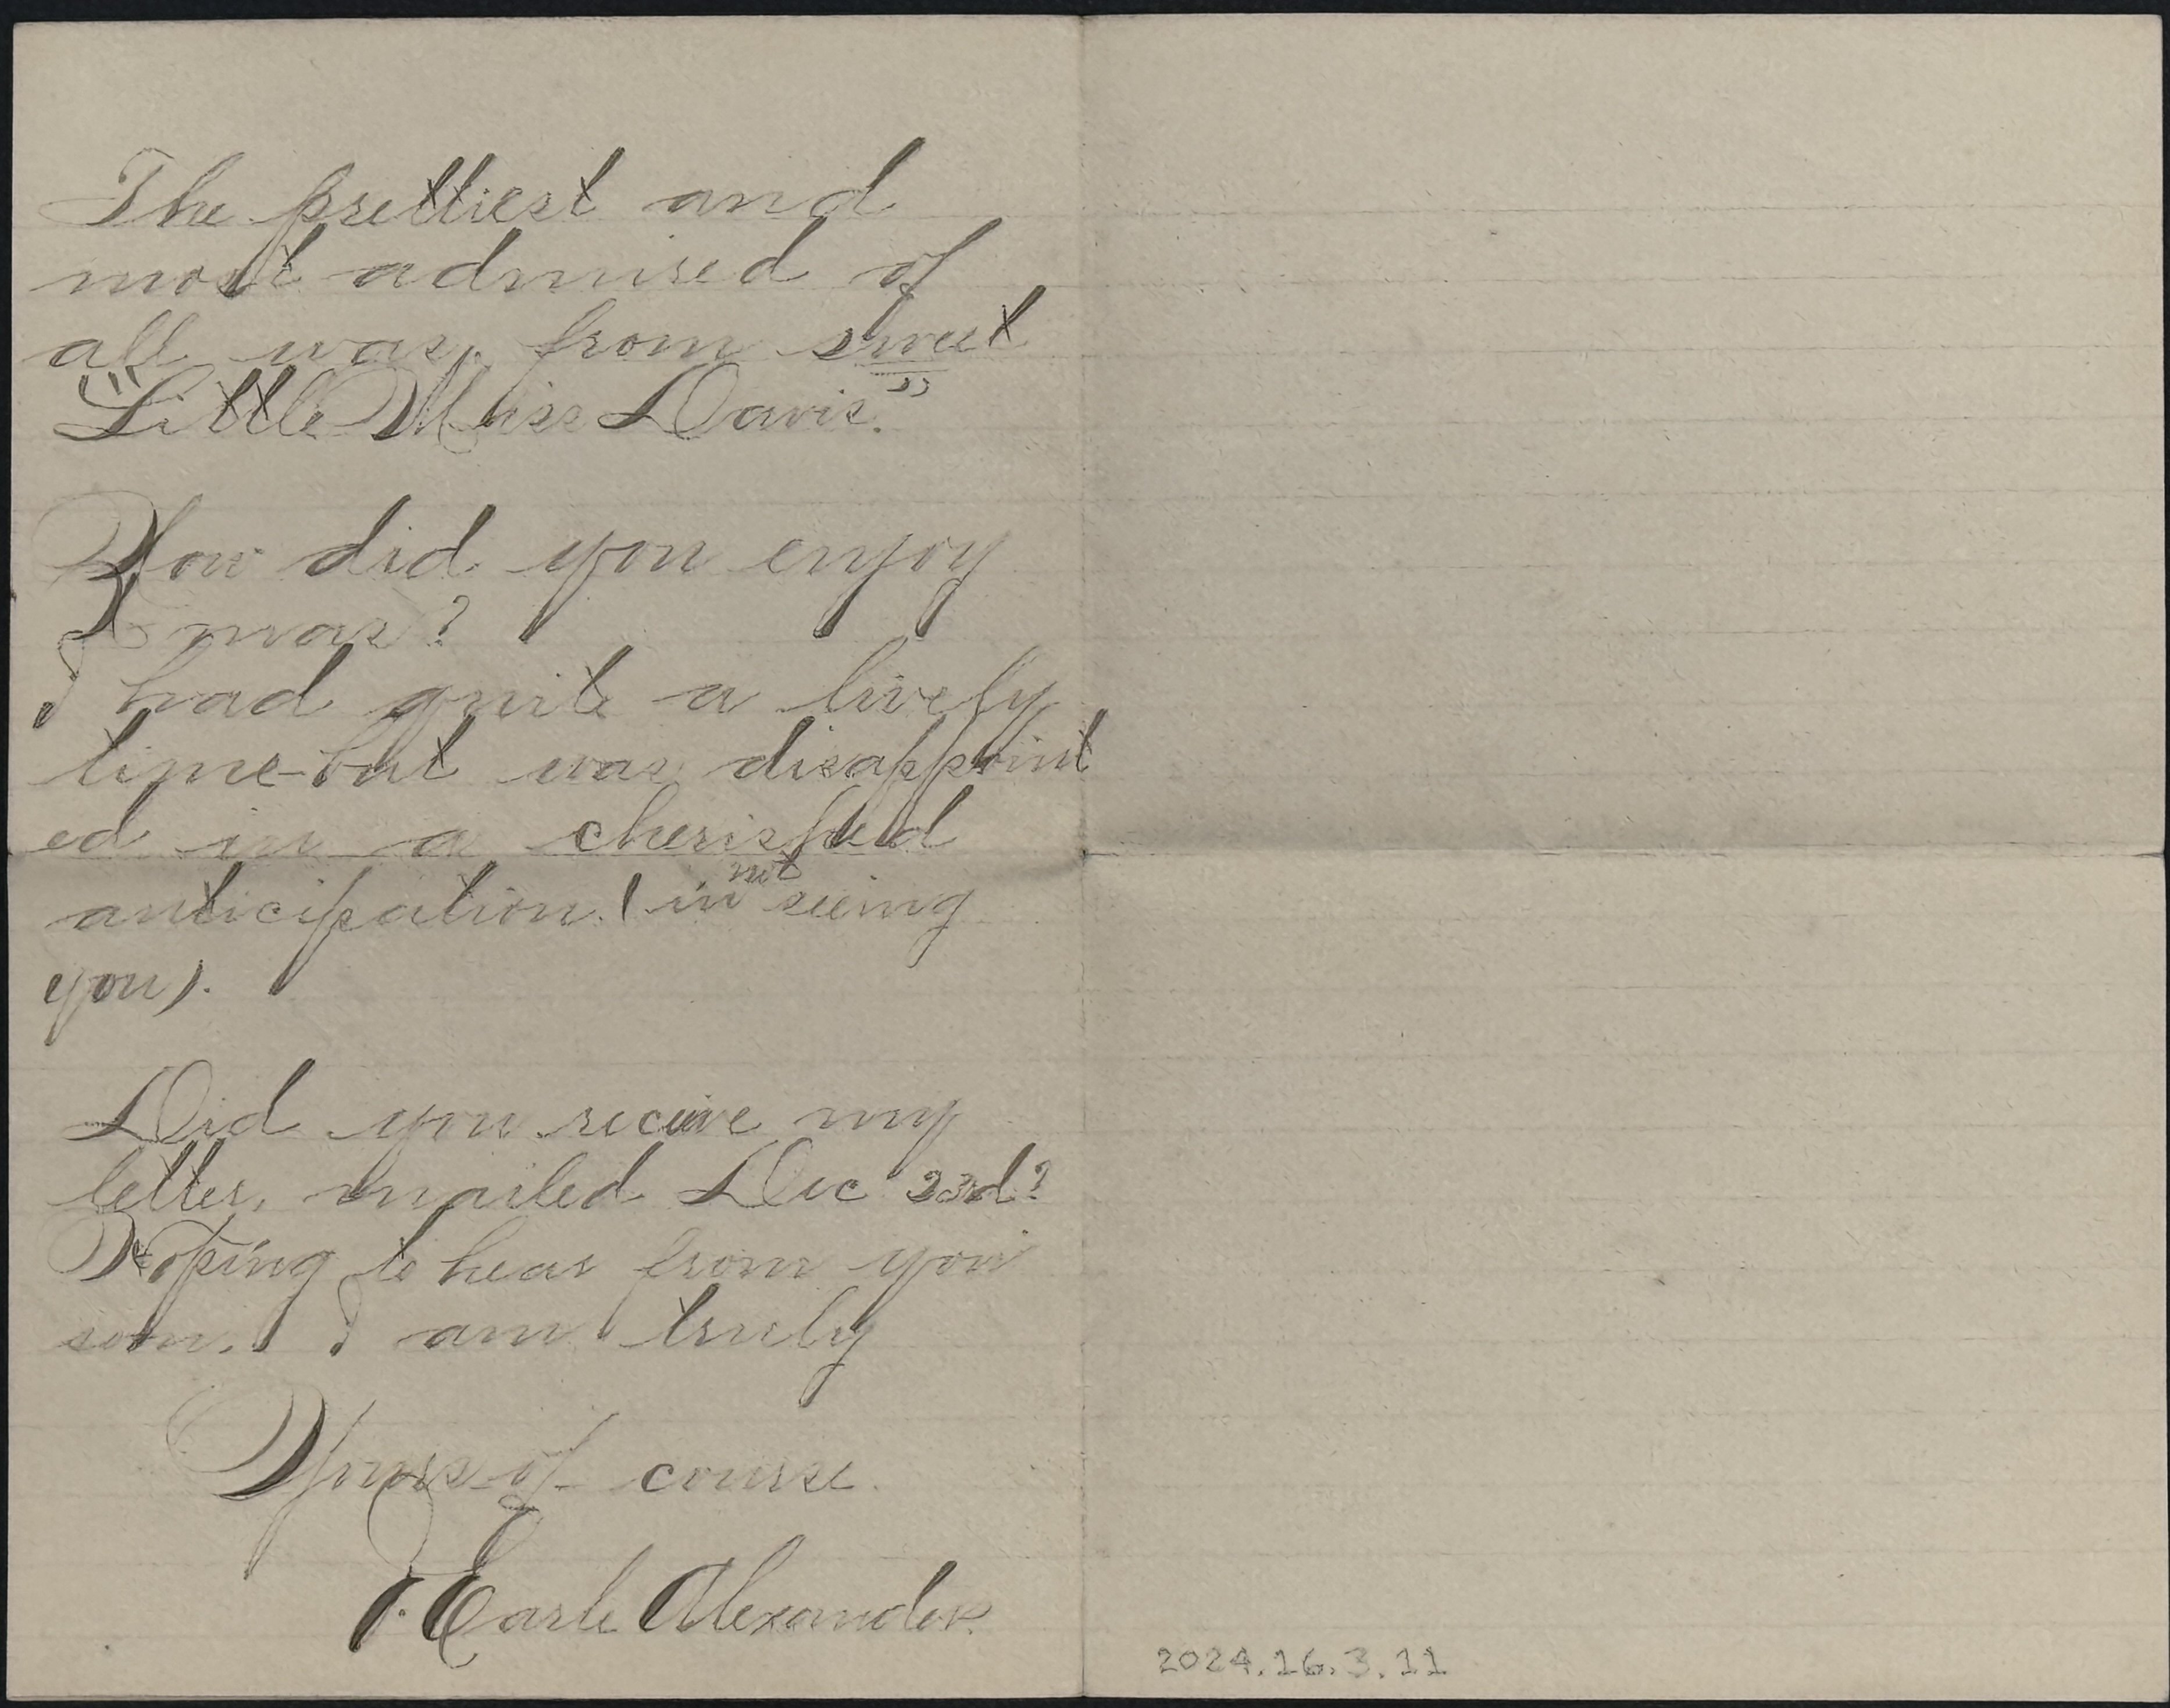 The prettiest and
most admired of
all was, from sweet
"Little Miss Davis."
How did you enjoy
Xmas?
I had quite a lively
time-but was disappoint
ed in a cherished
anticipation. (in not seeing
you).
Did you receive my
letter, mailed Dec 23rd?
Hoping to hear from you
soon. I am truly
Yours-of-course.
J. Earle Alexander.
2024.16.3.11